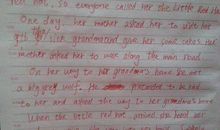 red hat, so everyone called her the Little Red Ha
One day, her mother asked her to visit her
sick grandma and give her some cakes. Her
mother asked her to walk along the main road.
On her way to her grandma's home she met
a big grey wolf. He pretended to be kind
to her and asked the way to her grandma's home
When the little red hat arrived she